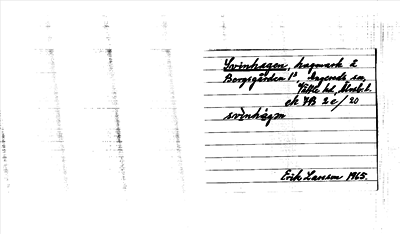 Svinhagen, hagmark å
Borgegården 1³, Angereds sn,
Vättle hd, Älvsb. l.
ek YB 2e/20
svinhágn
Erik Larsson 1965.